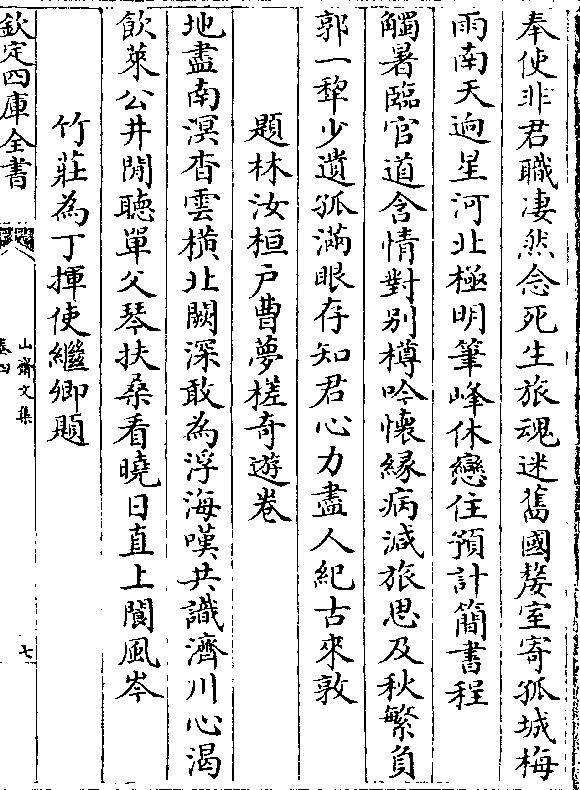 奉使非君職凄然念死生旅魂迷舊國嫠室寄孤城梅
雨南天逈星河北極明筆峰休戀住預計簡書程
觸暑臨官道含情對别樽吟懐緣病減旅思及秋繁負
郭一犂少遺孤滿眼存知君心力盡人紀古來敦
題林汝桓户曹夢槎奇遊卷
地盡南溟杳雲横北闕深敢為浮海嘆共識濟川心渴
飲萊公井閒聽單父琴扶桑看曉日直上閬風岑
竹莊為丁揮使繼卿題
欽定四庫全書
山齋文集
卷四
七